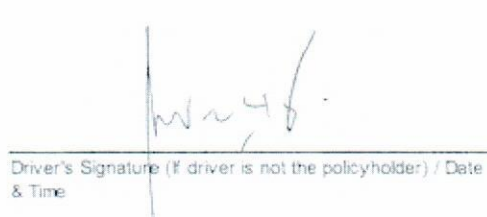 Driver's Signature (If driver is not the policyholder) / Date
& Time